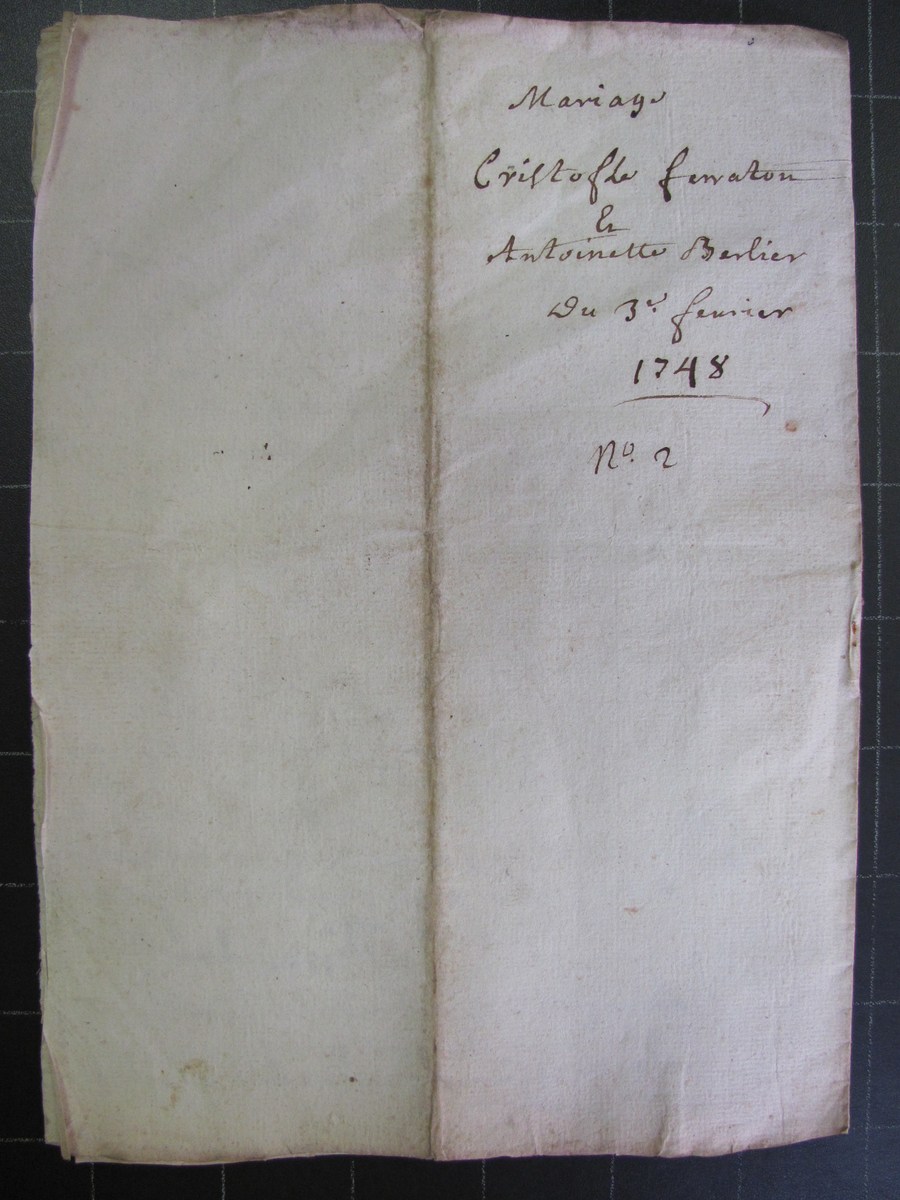 Mariage
Cristofle ferraton
Et
Antoinette Berlier
Du 3e. feurier
1748
No. 2